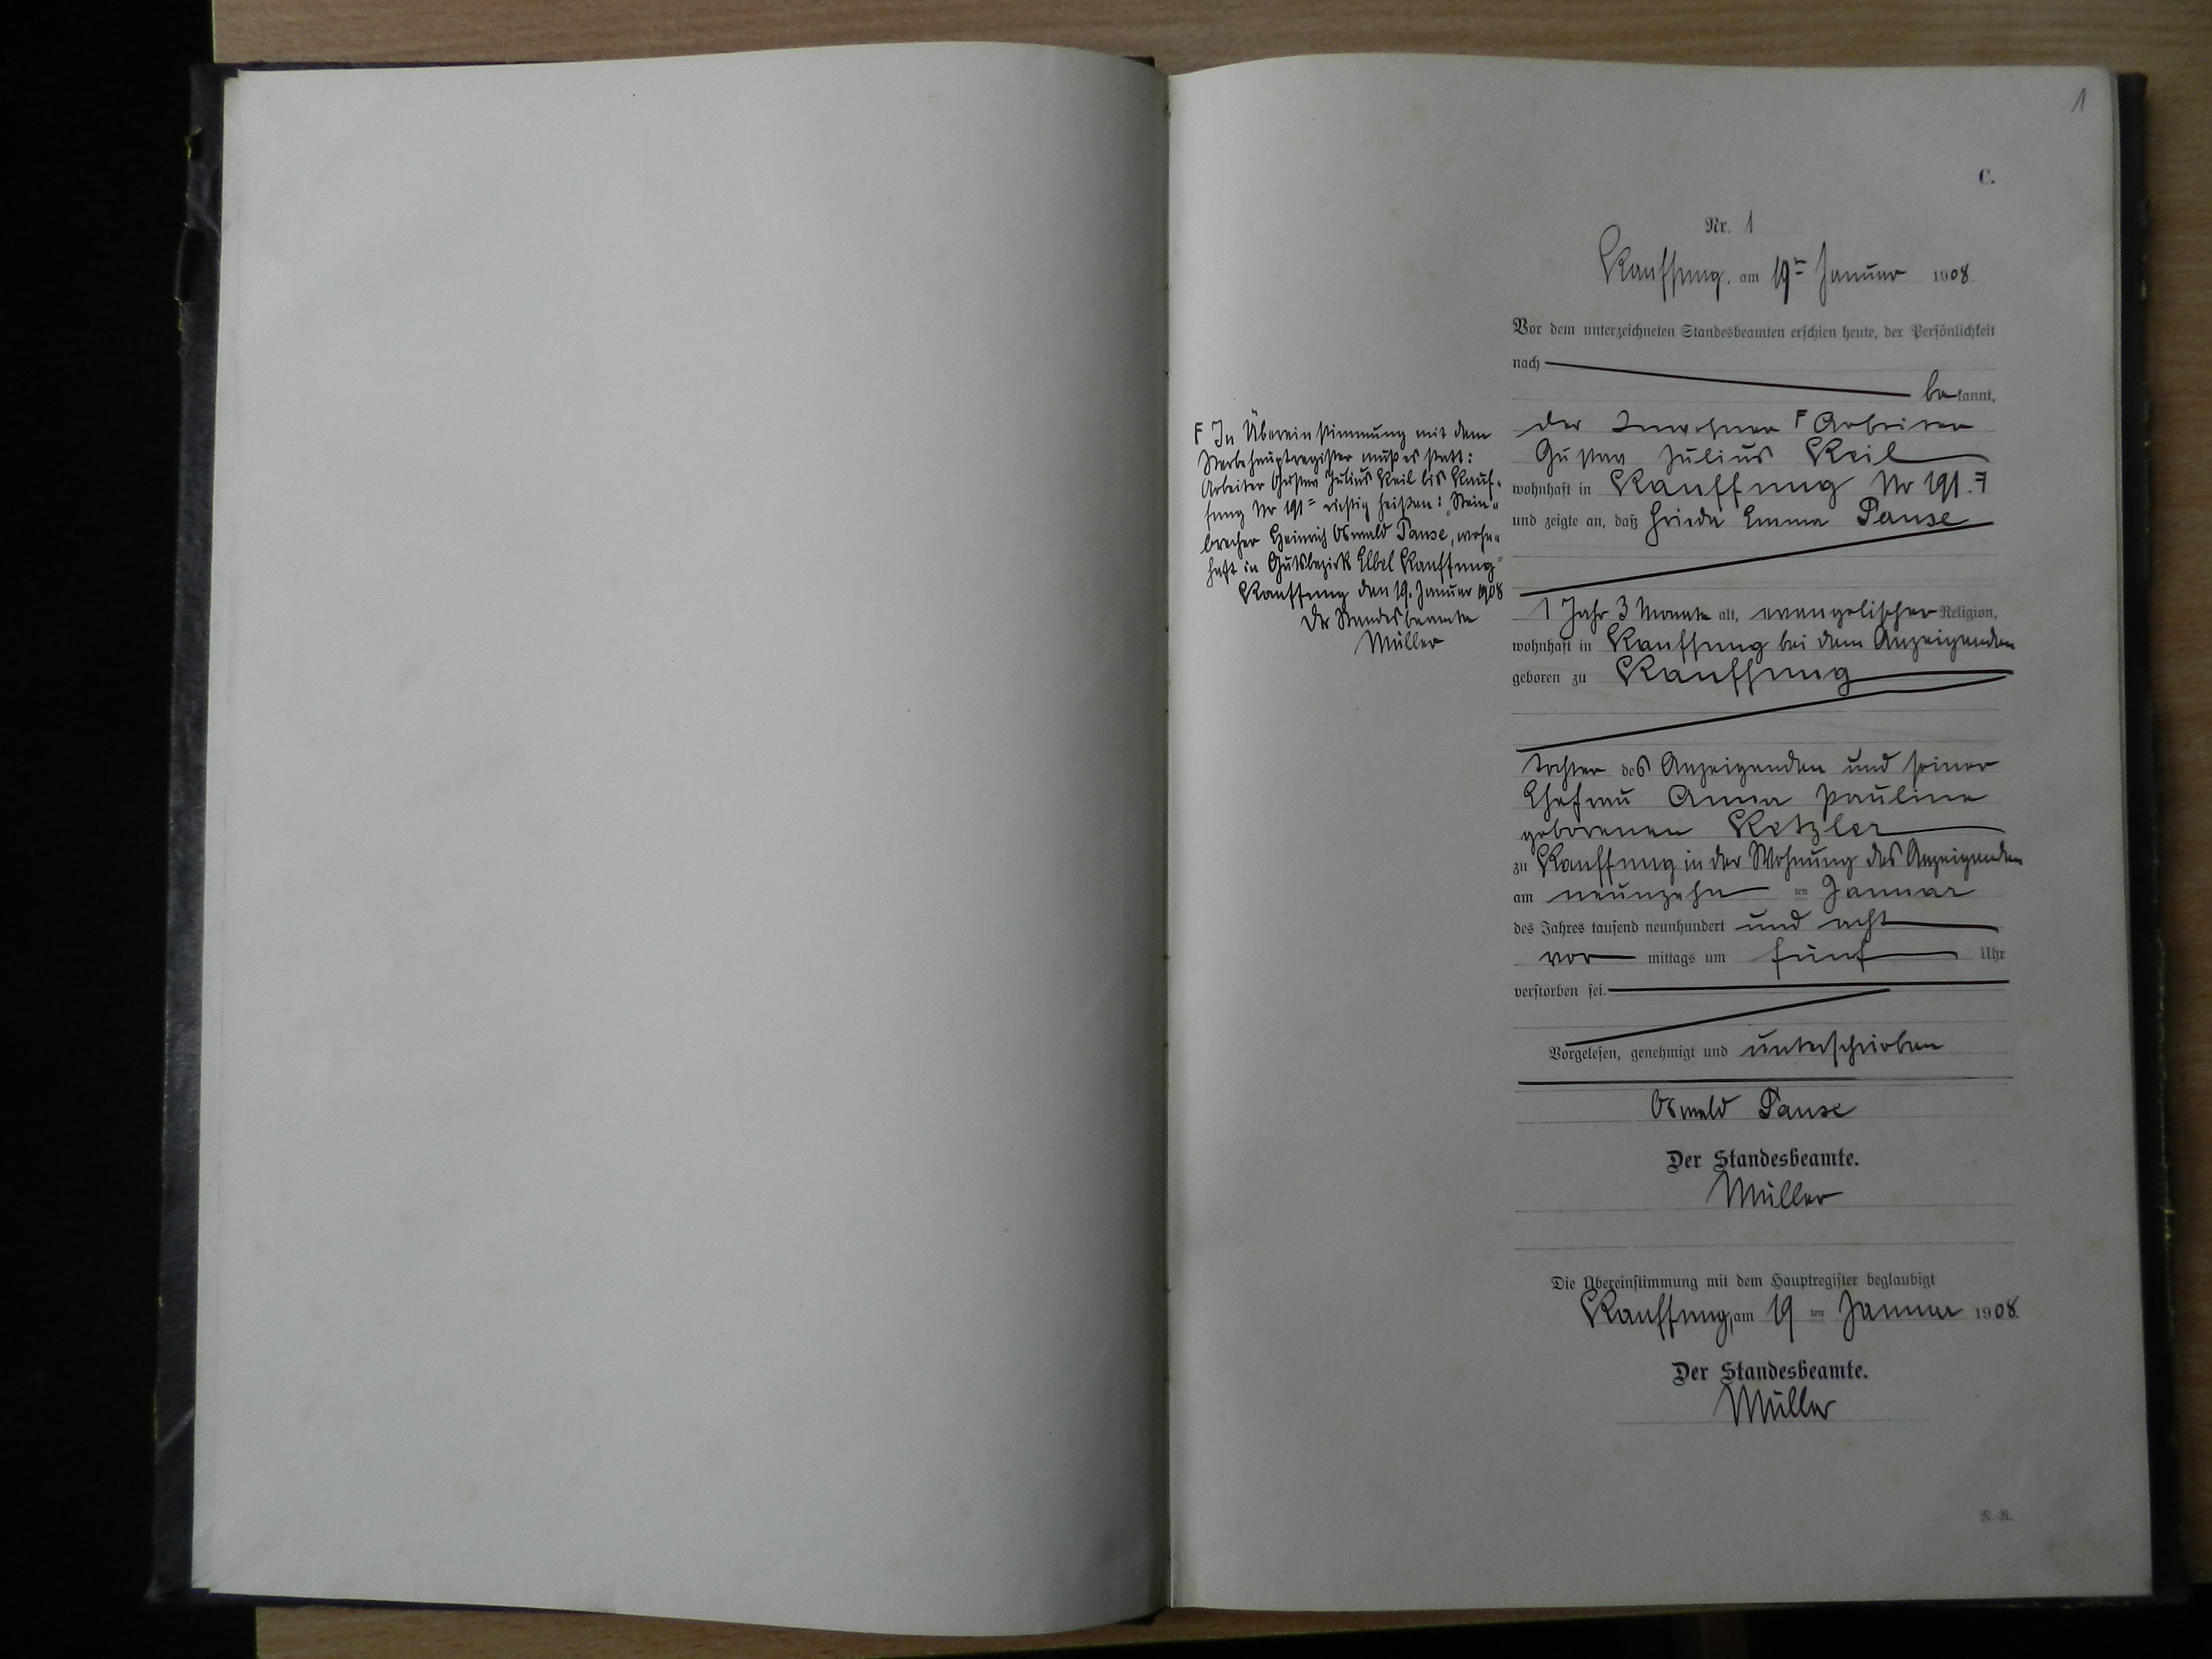 1
C.
Nr. 1
Kauffung, am 19ten Januar 1908.
Vor dem unterzeichneten Standesbeamten erschien heute, der Persönlichkeit
nach
bekannt,
der Inwohner F Arbeiter
Gustav Julius Keil
wohnhaft in Kauffung Nr 191. F
und zeigte an, daß Frieda Emma Pause
1 Jahr 3 Monate alt, evangelischer Religion,
wohnhaft in Kauffung bei dem Anzeigenden
geboren zu Kauffung
Tochter des Anzeigenden und seiner
Ehefrau Anna Pauline
geborenen Retzler
zu Kauffung in der Wohnung des Anzeigenden
am neunzehn ten Januar
des Jahres tausend neunhundert und acht
vor mittags um fünf Uhr
verstorben sei.
Vorgelesen, genehmigt und unterschrieben
Oswald Pause
Der Standesbeamte.
Müller
Die Übereinstimmung mit dem Hauptregister beglaubigt
Kauffung, am 19 ten Januar 1908.
Der Standesbeamte.
Müller
F In Übereinstimmung mit dem
Sterbehauptregister muß es statt:
Arbeiter Gustav Julius Keil bis Kauf-
fung Nr 191" richtig heißen: "Stein-
brecher Heinrich Oswald Pause, wohn-
haft in Gutsbezirk Elbel Kauffung"
Kauffung den 19. Januar 1908
Der Standesbeamte
Müller